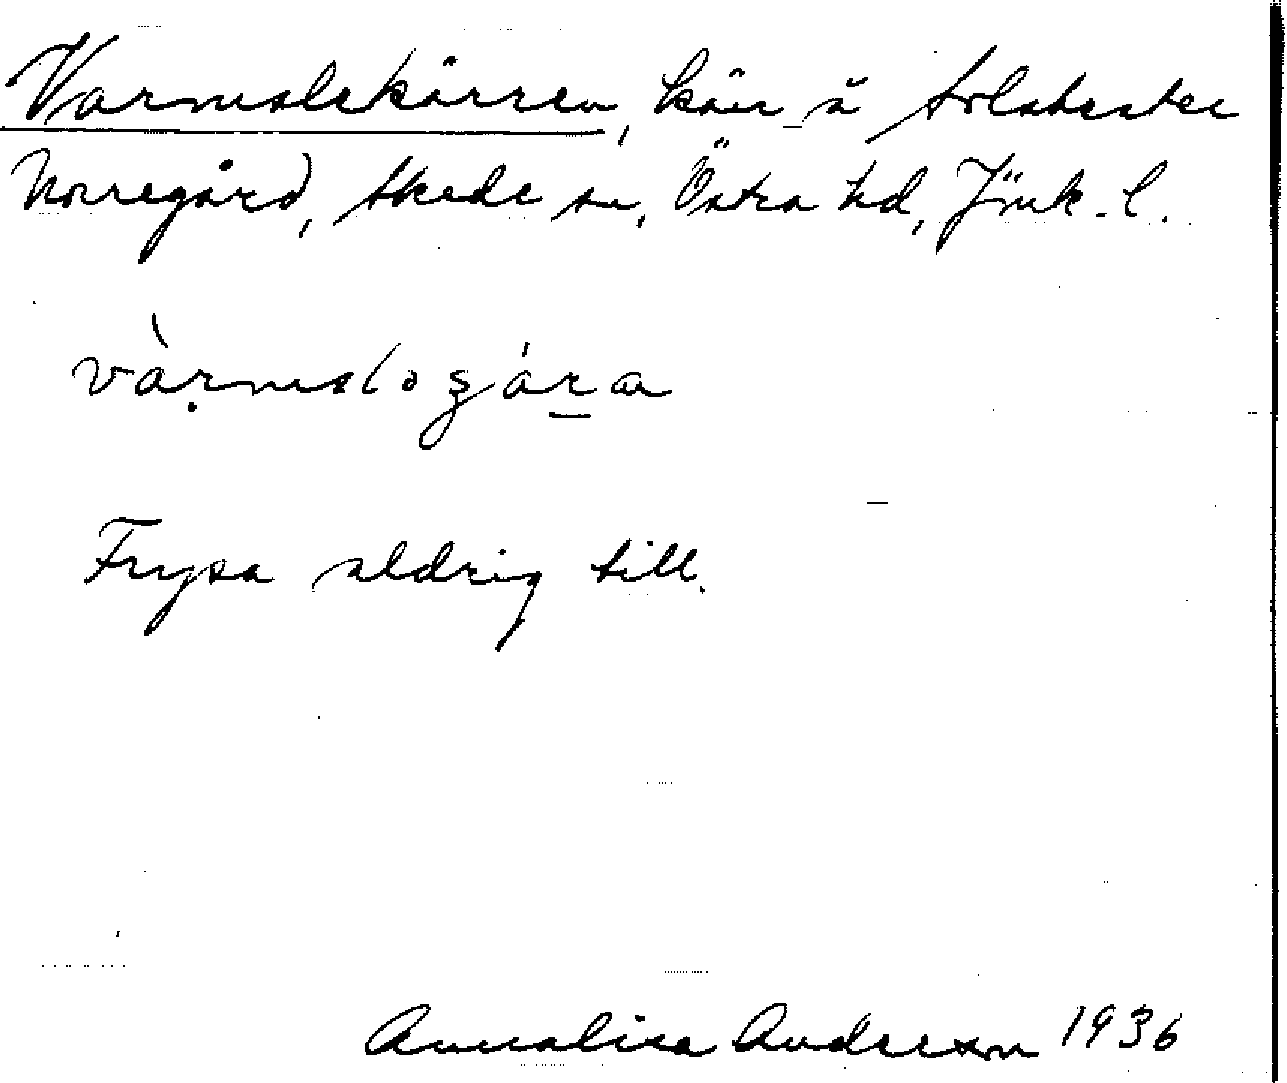 Varmslekärren, kärr å Solabester
Norregård, Skede sn, Östra hd, Jönk. l.
vàrmslo ʒára
Frysa aldrig till.
Annalisa Anderson 1936